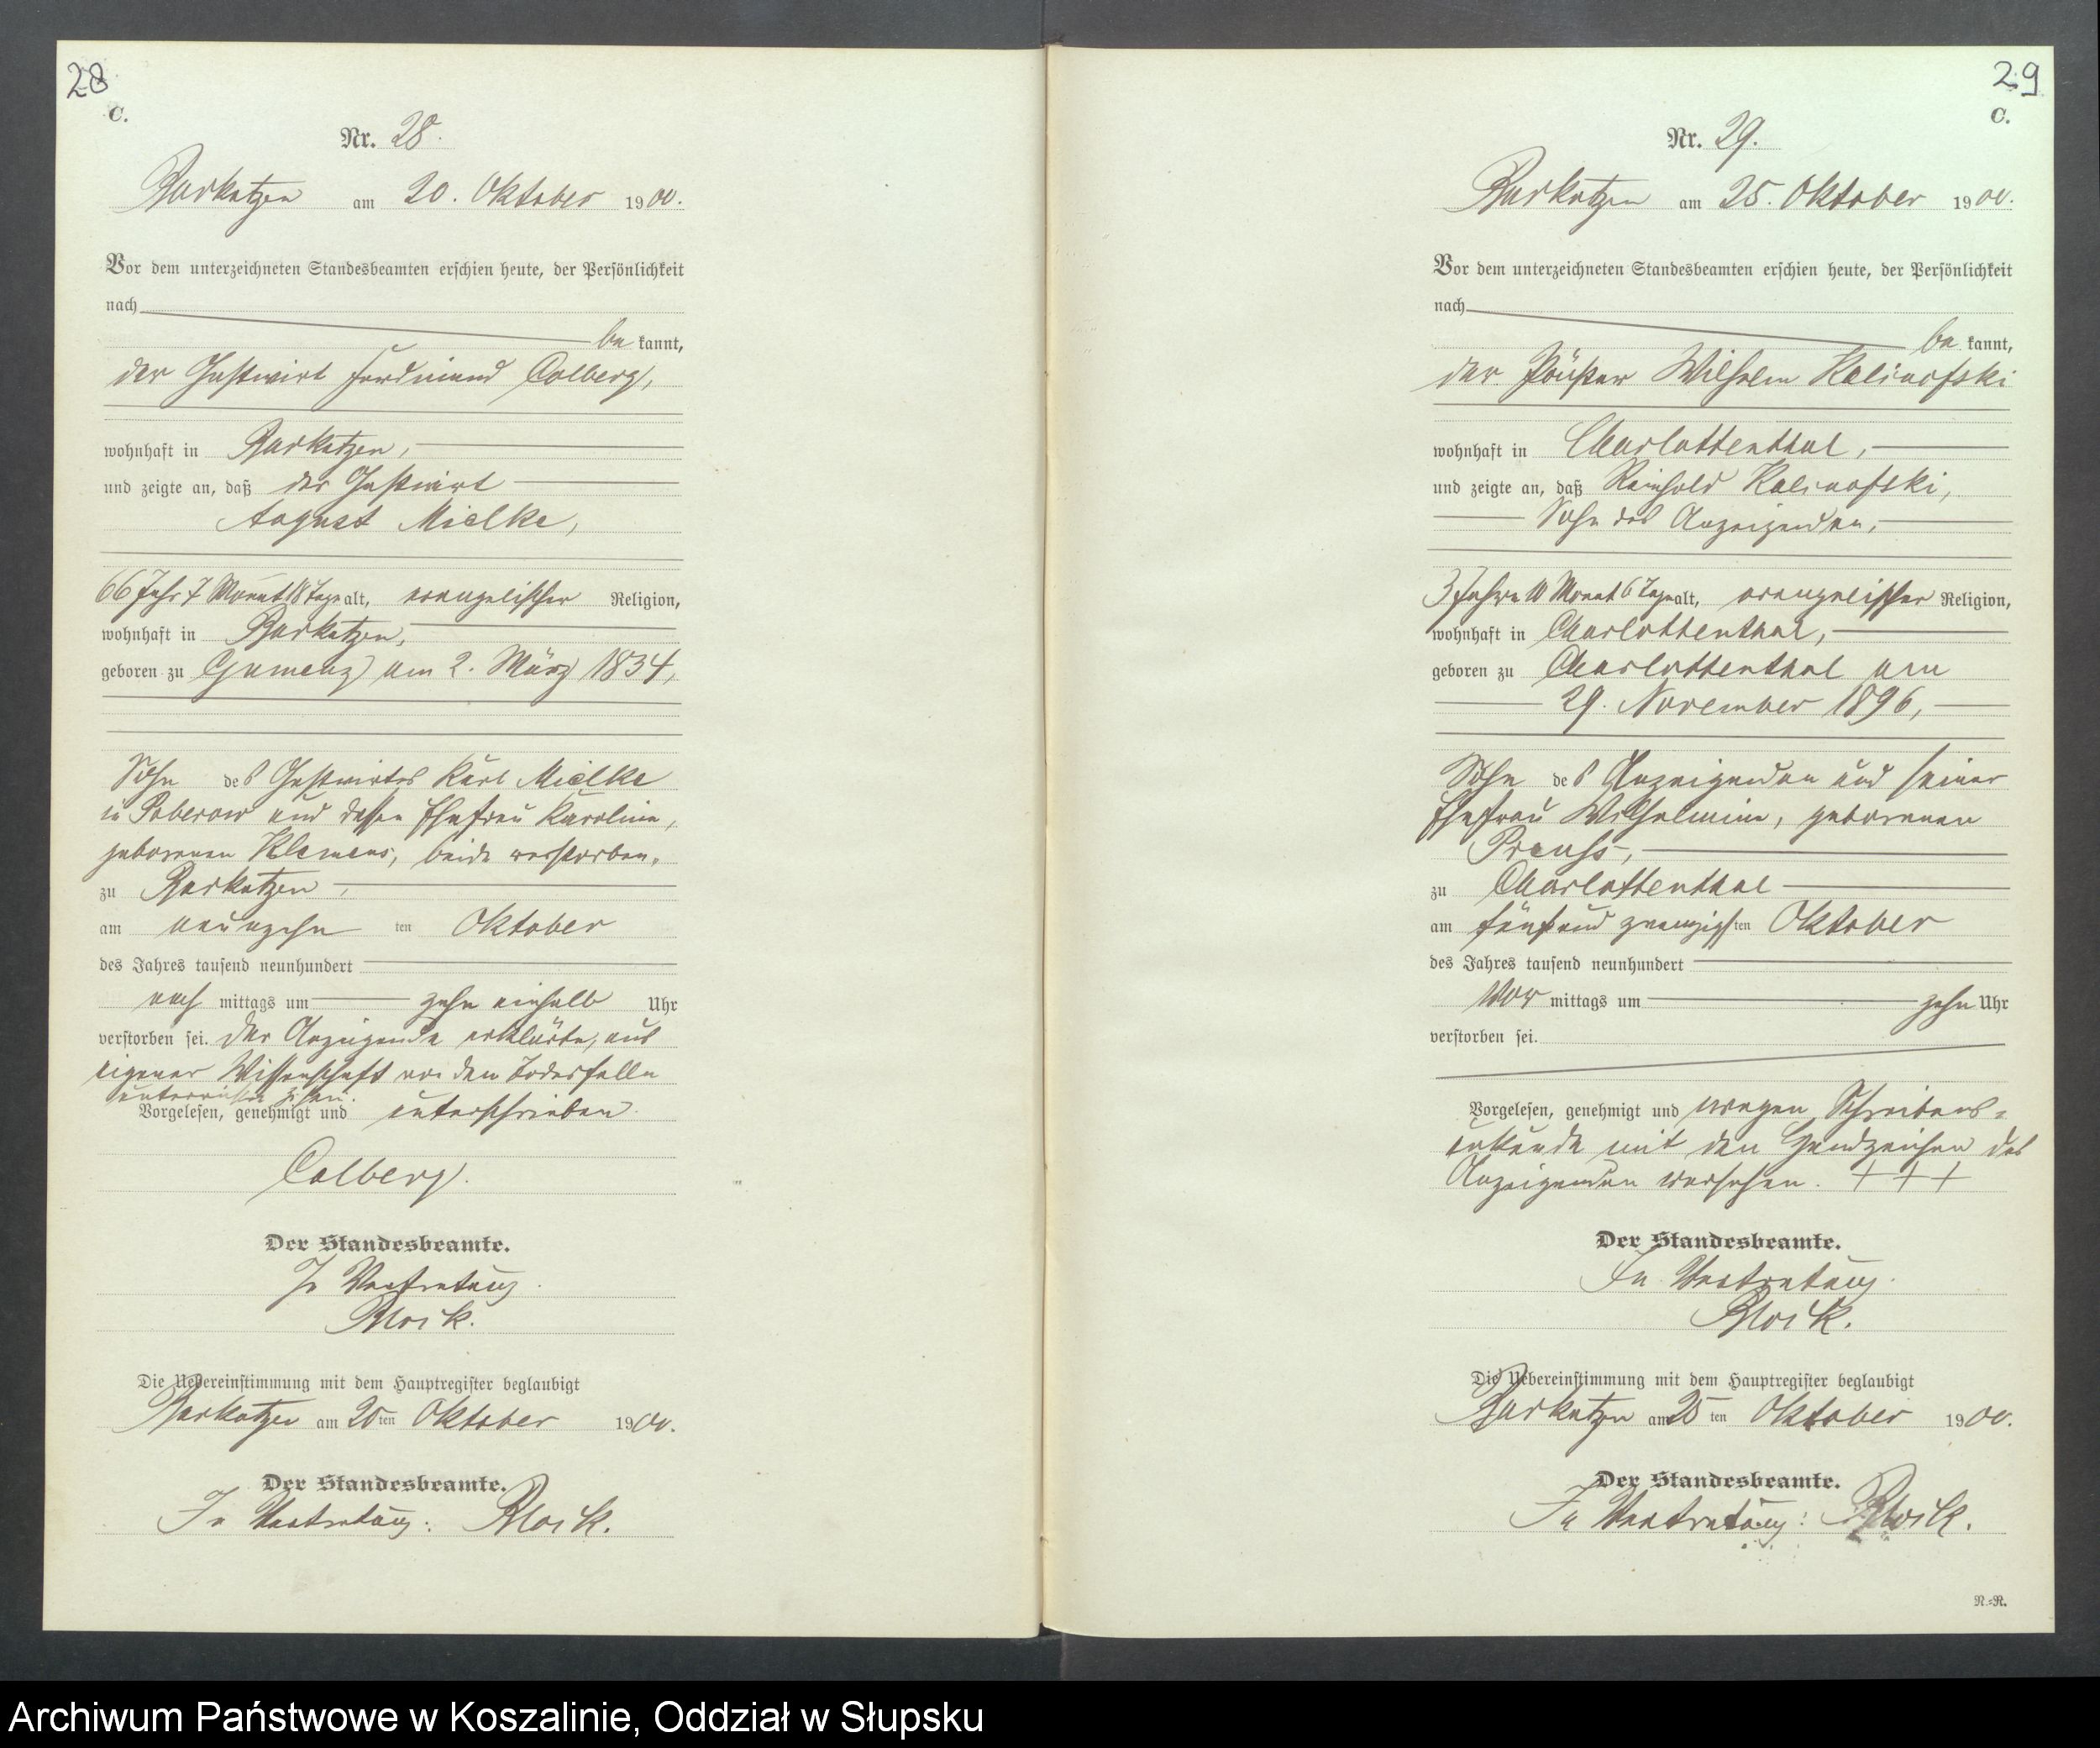 28
C.
Nr. 28.
Barkotzen am 20. Oktober 1900.
Vor dem unterzeichneten Standesbeamten erschien heute, der Persönlichkeit
nach
be kannt,
der Gastwirt Ferdinand Colberg,
wohnhaft in Barkotzen,
und zeigte an, daß der Gastwirt
August Mielke,
66 Jahr 7 Monat 18 Tage alt, evangelischer Religion,
wohnhaft in Barkotzen,
geboren zu Gumenz am 2. März 1834,
Sohn des Gastwirtes Karl Mielke
in Poberow und dessen Ehefrau Karoline,
geborenen Klemens, beide verstorben,
zu Barkotzen,
am neunzehn ten Oktober
des Jahres tausend neunhundert
nach mittags um zehn einhalb Uhr
verstorben sei. Der Anzeigende erklärte, aus
eigener Wissenschaft von dem Todesfalle
unterrichtet zu sein.
Vorgelesen, genehmigt und unterschrieben.
Colberg.
Der Standesbeamte.
In Vertretung.
Block.
Die Uebereinstimmung mit dem Hauptregister beglaubigt
Barkotzen am 20ten Oktober 1900.
Der Standesbeamte.
In Vertretung: Block.
29
C.
Nr. 29.
Barkotzen am 25. Oktober 1900.
Vor dem unterzeichneten Standesbeamten erschien heute, der Persönlichkeit
nach
be kannt,
der Wilhelm Kalinofski
wohnhaft in Charlottenthal,
und zeigte an, daß Reinhold Kalinofski,
Sohn des Anzeigenden,
3 Jahre 10 Monat 6 Tage alt, evangelischer Religion,
wohnhaft in Charlottenthal,
geboren zu Charlottenthal am
29. November 1896,
Sohn des Anzeigenden und seiner
Ehefrau Wilhelmine, geborenen
Preuss,
zu Charlottenthal
am fünfund zwanzigsten Oktober
des Jahres tausend neunhundert
Vor mittags um zehn Uhr
verstorben sei.
Vorgelesen, genehmigt und wegen Schreibens-
unkunde mit den Handzeichen des
Anzeigenden versehen. + + +
Der Standesbeamte.
In Vertretung.
Block.
Die Uebereinstimmung mit dem Hauptregister beglaubigt
Barkotzen am 25 ten Oktober 1900.
Der Standesbeamte.
In Vertretung: Block.
N.-R.
Archiwum Państwowe w Koszalinie, Oddział w Słupsku